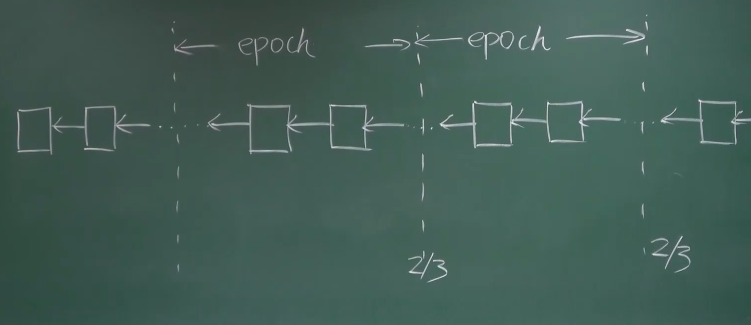 epoch epoch
2/3 2/3